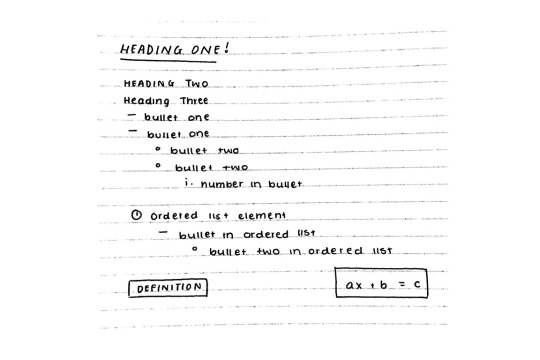 HEADING ONE!
HEADING TWO
Heading Three
- bullet one
- bullet one
° bullet two
° bullet two
i. number in bullet
① Ordered list element
- bullet in ordered list
° bullet two in ordered list
DEFINITION
ax + b = c